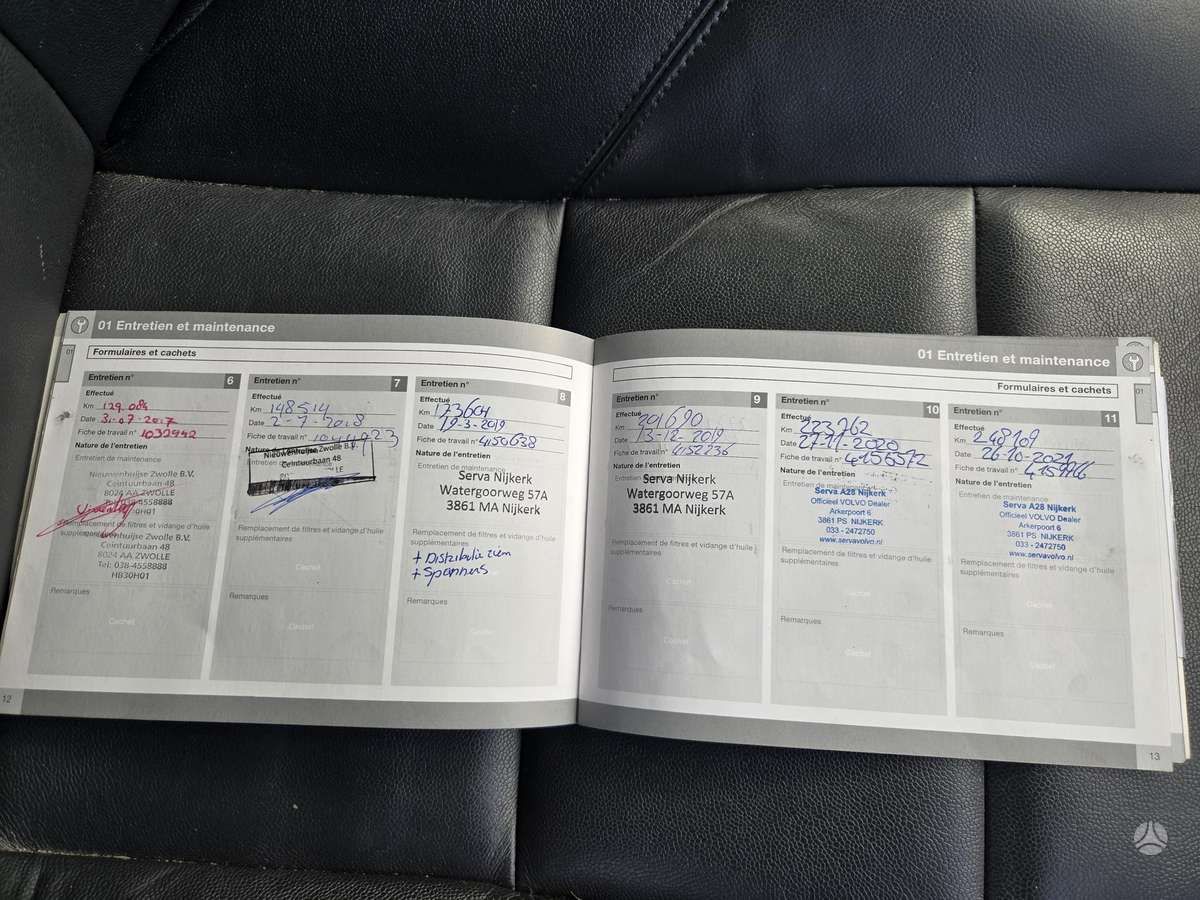 01 Entretien et maintenance
01
Formulaires et cachets
Entretien n° 6
Effectué
Km 129.084
Date 31-07-2017
Fiche de travail n° 1032942
Nature de l'entretien
Entretien de maintenance
Nieuwenhuijse Zwolle B.V.
Ceintuurbaan 48
8024 AA ZWOLLE
Remplacement de filtres et vidange d'huile
Ceintuurbaan 48
8024 AA ZWOLLE
Tel: 038-4558888
HB30H01
Remarques
Cachet
Entretien n° 7
Effectué
Km 148514
Date 2-7-2018
Fiche de travail n°
Nieuwenhuijse Zwolle B.V.
Ceintuurbaan 48
Remplacement de filtres et vidange d'huile
supplémentaires
Cachet
Remarques
Cachet
Entretien n° 8
Effectué
Km 173601
Date 19-3-2019
Fiche de travail n° 4150638
Nature de l'entretien
Entretien de maintenance
Serva Nijkerk
Watergoorweg 57A
3861 MA Nijkerk
Remplacement de filtres et vidange d'huile
supplémentaires
+ Distributie riem
+ Spanners
Remarques
12
01 Entretien et maintenance
Formulaires et cachets
01
Entretien n° 9
Effectué
Km 201690
Date 13-12-2019
Fiche de travail n° 4152236
Nature de l'entretien
Entretien de maintenance
Serva Nijkerk
Watergoorweg 57A
3861 MA Nijkerk
Remplacement de filtres et vidange d'huile
supplémentaires
Cachet
Remarques
Cachet
Entretien n° 10
Effectué
Km 223762
Date 27-11-2020
Fiche de travail n° 4155572
Nature de l'entretien
Serva A28 Nijkerk
Officieel VOLVO Dealer
Arkerpoort 6
3861 PS NIJKERK
033 - 2472750
www.servavolvo.nl
Remplacement de filtres et vidange d'huile
supplémentaires
Cachet
Remarques
Cachet
Entretien n° 11
Effectué
Km 248109
Date 26-10-2021
Fiche de travail n°
Nature de l'entretien
Entretien de maintenance
Serva A28 Nijkerk
Officieel VOLVO Dealer
Arkerpoort 6
3861 PS NIJKERK
033 - 2472750
www.servavolvo.nl
Remplacement de filtres et vidange d'huile
supplémentaires
Cachet
Remarques
Cachet
13